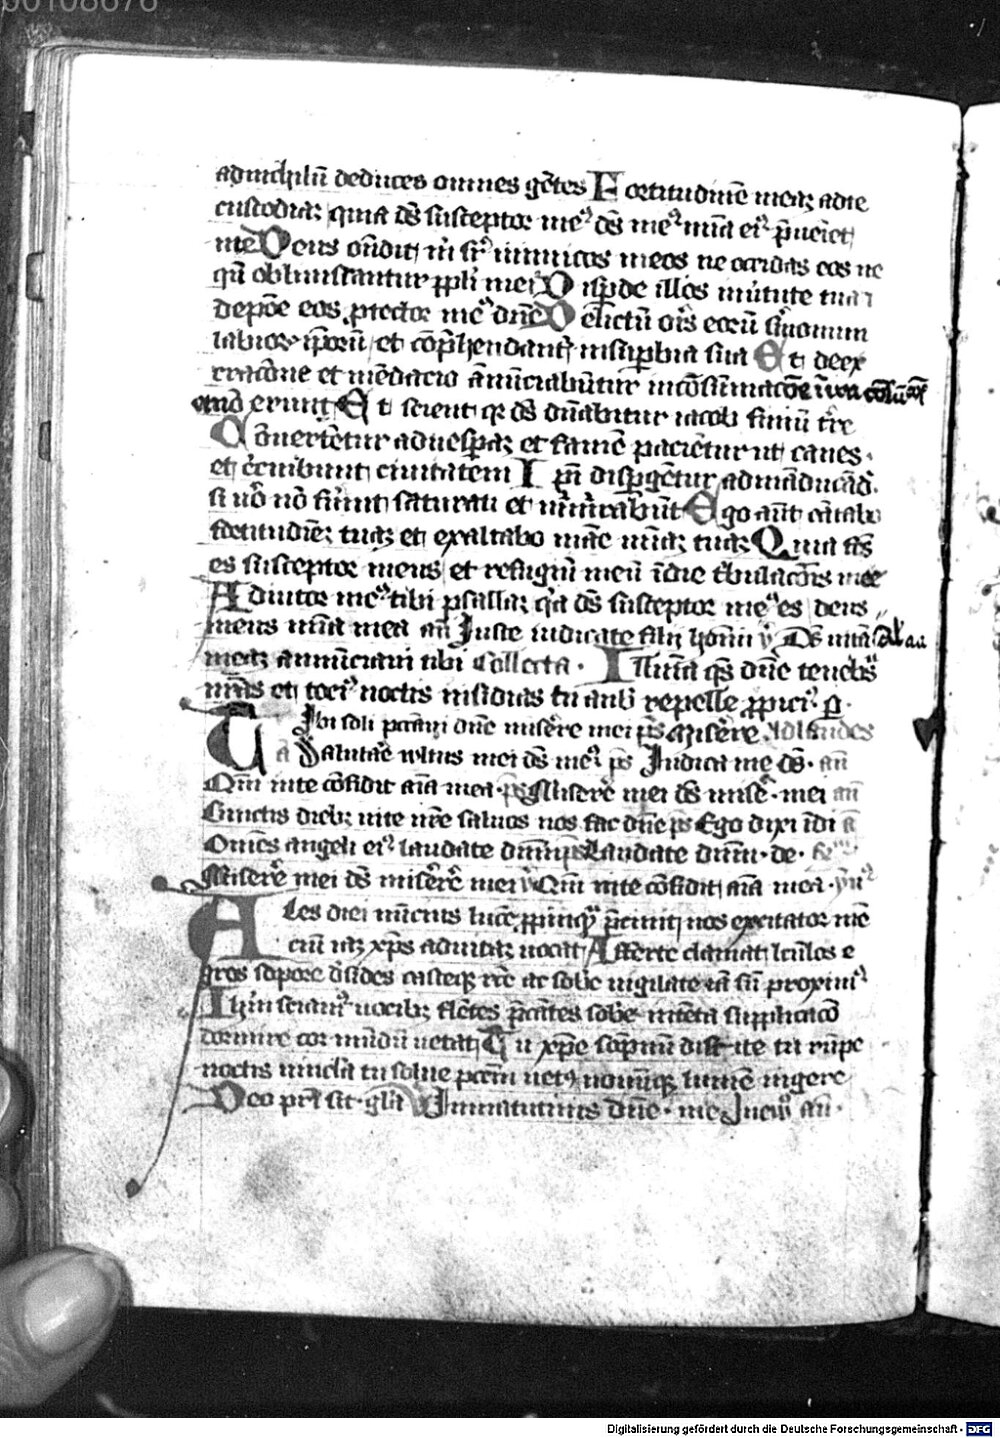 00108676
adnichilū deduces omnes gētes Fortitudinē meaꝫ adte
custodiaꝫ quia ds̄ susceptor meꝰ ds̄ meꝰ mīa eiꝰ p̄ueīet
me Deus ondit m̄ sr̄ inimicos meos ne occidas eos ne
qn̄ obliuiscantur ppl̄i mei Dispde illos inūtute tua
depōe eos ptector meꝰ dn̄e Delictū oris eorū smonum
labiorꝫ ipsorū et cōp̄hendant̄ insuꝑbia sua Et deex
cracōne et mēdacio ānūciabūtur incōsūmacōe īira cōsūacōis
et nō erunt Et scient qꝫ ds̄ dn̄abitur iacob finiū t̄re
Cōuertētur aduespaꝫ et famē pacientur ut canes
et c̄cuibunt ciuitatem Ip̄i dispgētur admāducād̄
si uō nō fūint saturati et murmurabūt Ego aūt cātabo
fortitudinēꝫ tuaꝫ et exaltabo mane mīaꝫ tuaꝫ Quia fcs̄
es susceptor meus et refugiū meū īdie tbulacōis mee
Adiutor meꝰ tibi psallaꝫ qa ds̄ susceptor meꝰ es deus
meus mīa mea an̄ Iuste iudicate filii homī ꝟ Ds̄ uitā
meaꝫ annūciaui tibi Collecta Illumīa qs̄ dn̄e tenebs̄
nr̄as et tociꝰ noctis insidias tu a nob repelle ppiciꝰ ꝑ
Tibi soli peccaui dn̄e miserere mei ps̄ Miserere Adlaudes
an̄ Salutare uultus mei ds̄ meꝰ ps̄ Iudica me ds̄ an̄
Qm̄ inte cōfidit aīa mea ps̄ Miserere mei ds̄ mise mei an̄
Cunctis diebꝫ uite nr̄e saluos nos fac dn̄e ps̄ Ego dixi īdi ā
Omēs angeli eiꝰ laudate dn̄m ps̄ Laudate dn̄m de
Miserere mei ds̄ miserere mei ꝟ Qm̄ inte cōfidit aīa mea ymꝰ
Ales diei nūcius lucē ppinqꝫ p̄cinit nos excitator mē
ciū iaꝫ xp̄s aduitaꝫ uocat Afferte clamat lctulos e
gros sopore dsides casteqꝫ rcē ac sobe uigilate iā sū proximꝰ
Ihm̄ sciamꝰ uocibꝫ flētes pcātes sobe intēta supplicacō
dormire cor mūdū uetat Tu xp̄e sompnū disice tu rūpe
noctis uincla tu solue pccm̄ uetꝰ nouūqꝫ lumē ingere
Deo pri sit glīa Immatutinis dn̄e me Iuenꝰ an̄
Digitalisierung gefördert durch die Deutsche Forschungsgemeinschaft - DFG